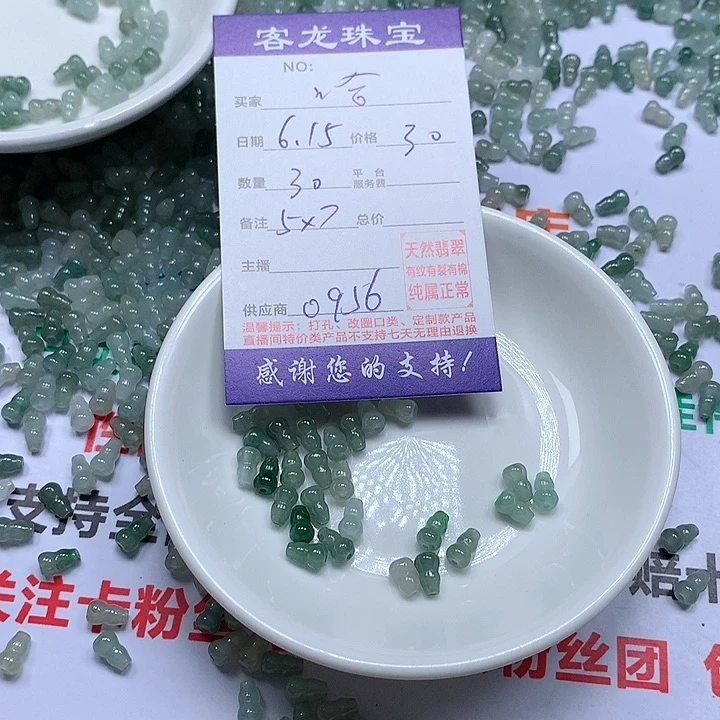 客龙珠宝
NO:
买家
日期 6.15 价格 30
数量 30 平台服务费
备注 5×7 总价
主播
天然翡翠
有纹有裂有棉
纯属正常
供应商 0956
温馨提示：打孔、改圈口类、定制款产品
直播间特价类产品不支持七天无理由退换
感谢您的支持!
支持全
关注卡粉丝
粉丝团
赔十